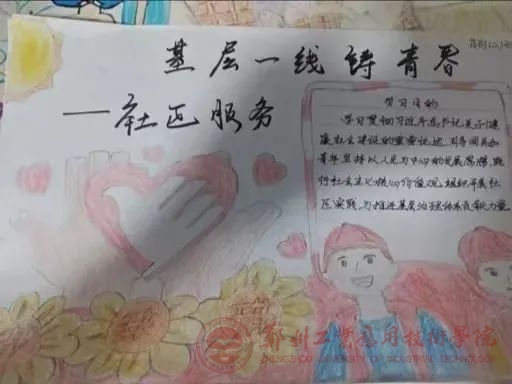 基层一线铸青春
——社区服务
学习目的
学习贯彻习近平总书记关于健
康社会建设的重要论述,引导团员和
青年坚持以人民为中心的发展思想,践
行社会主义核心价值观,组织开展社
区实践,为推进基层治理体系贡献力量
鄭州工業應用技術學院
ZHENGZHOU UNIVERSITY OF INDUSTRIAL TECHNOLOGY